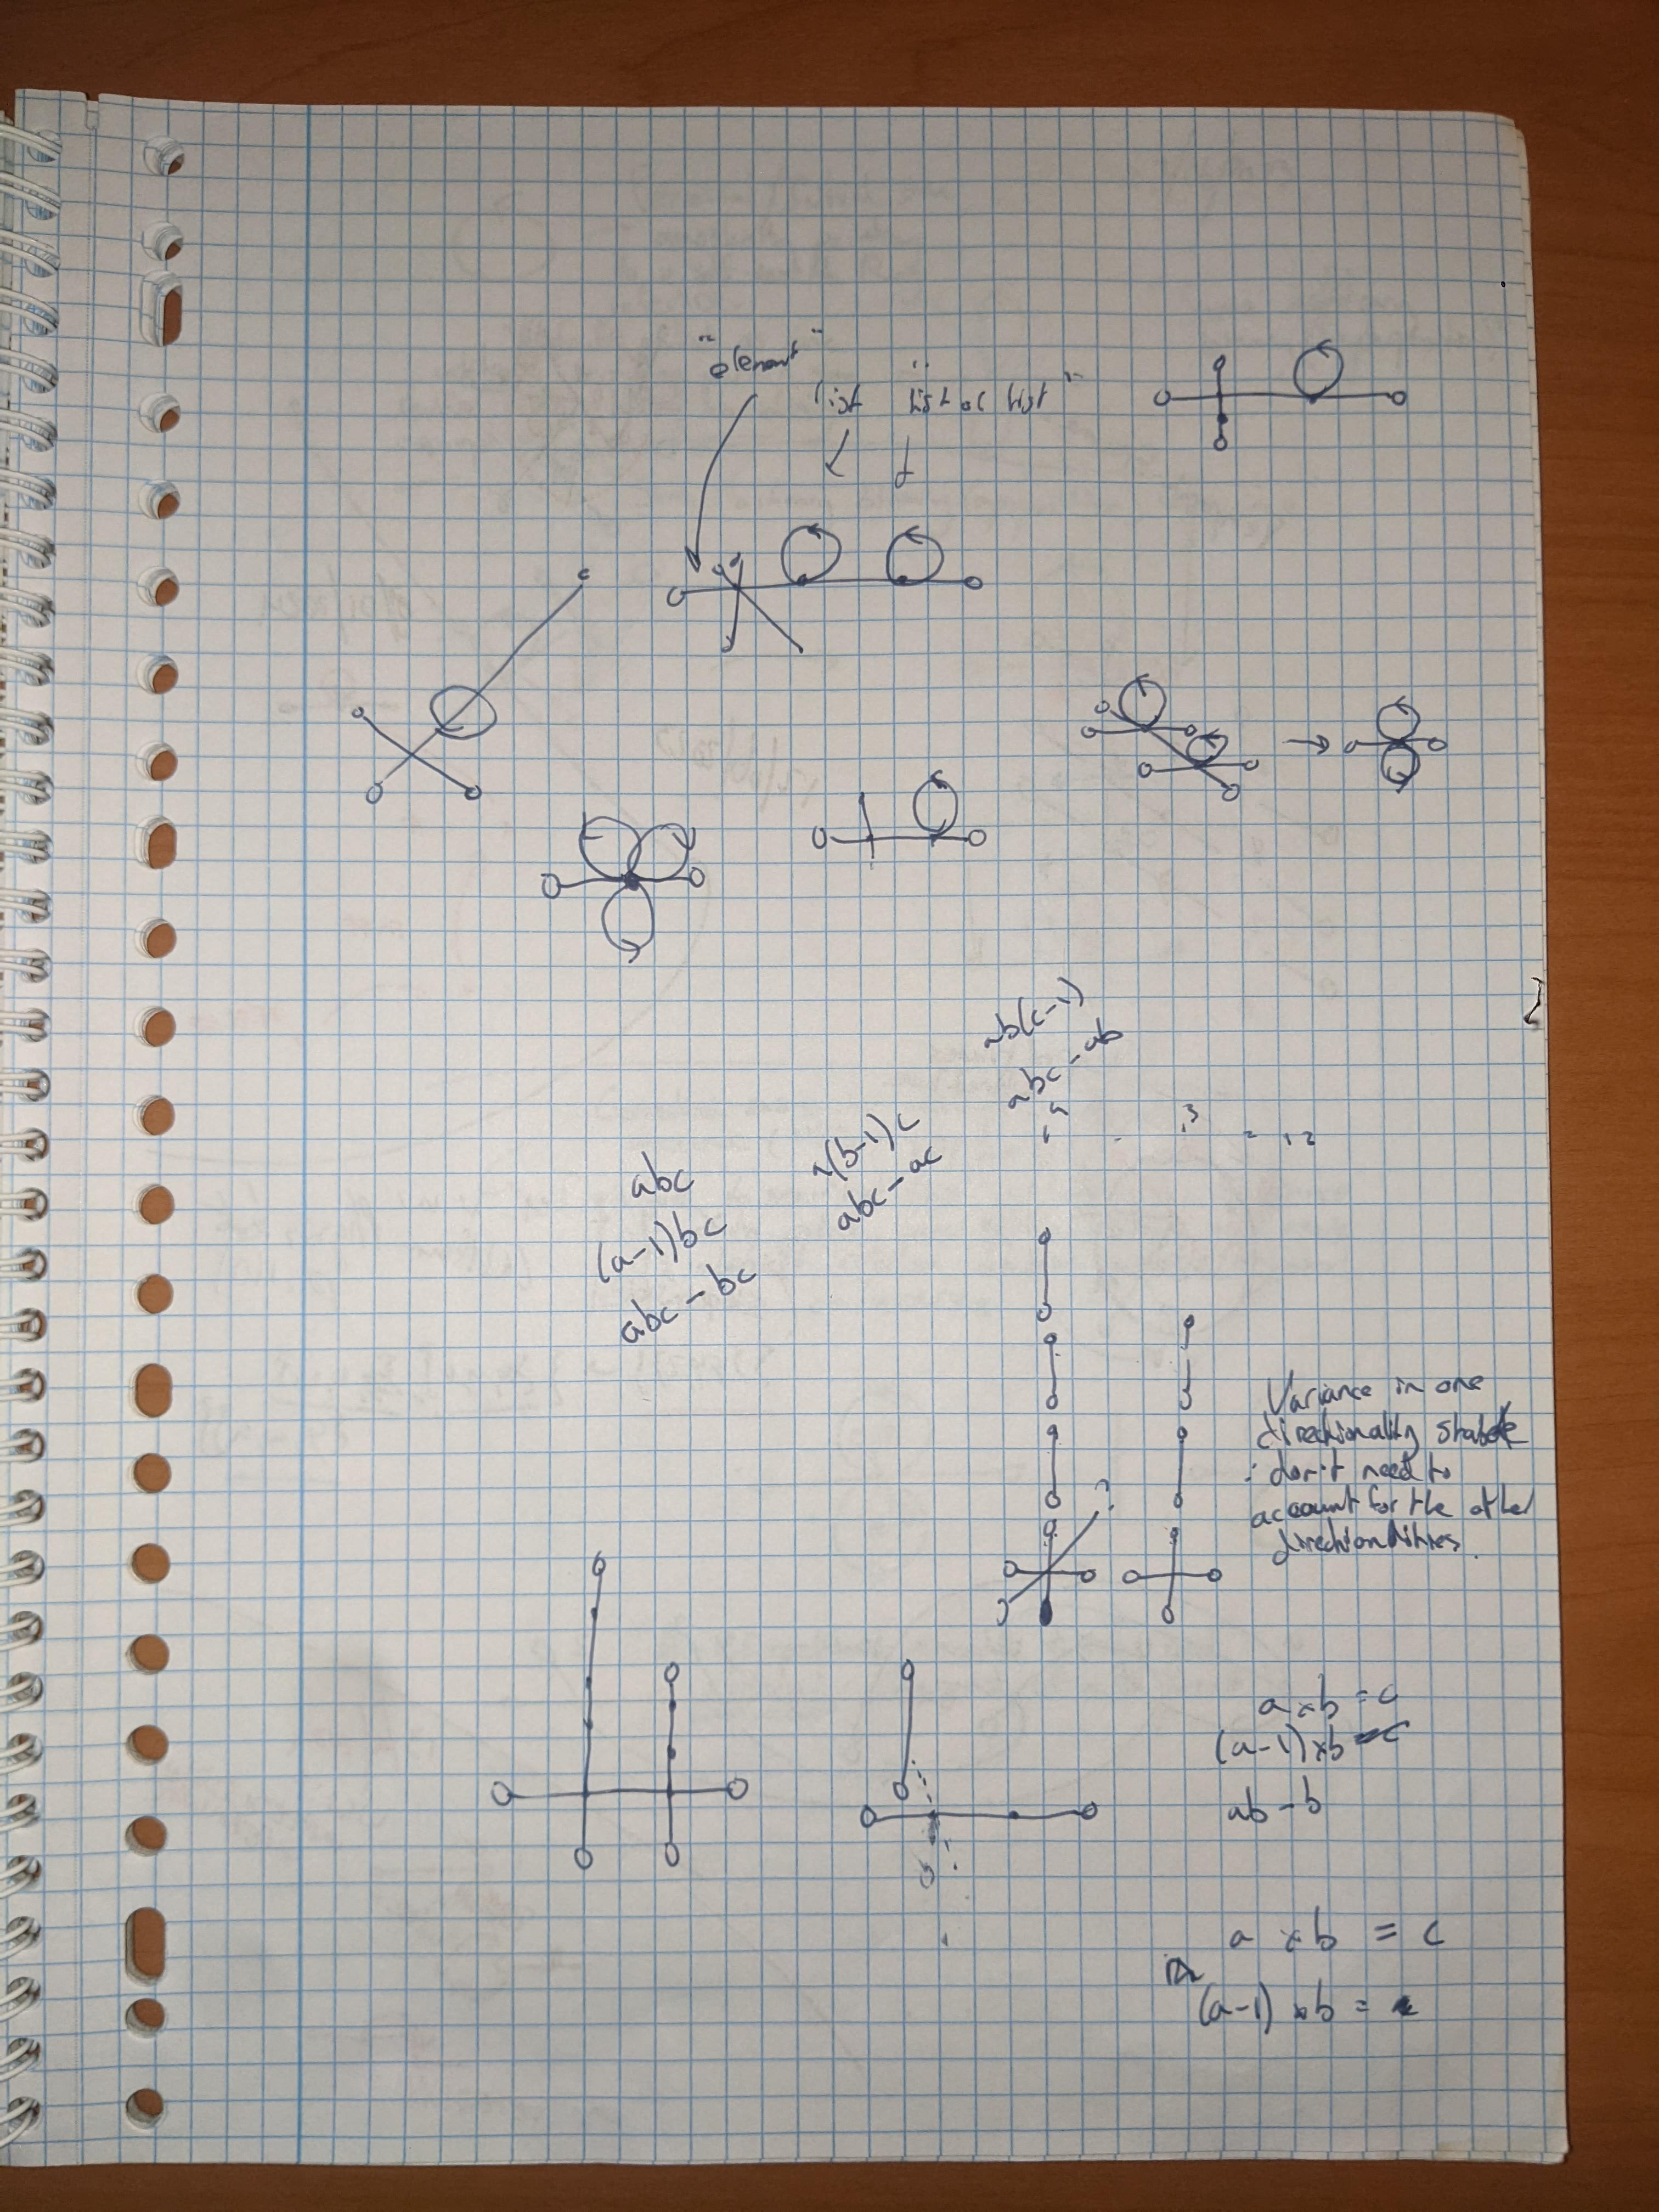 "element"
"list
"list of list"
ab(c-1)
abc - ab
a(b-1)c
abc - ac
abc
(a-1)bc
abc - bc
Variance in one
directionality stable
∴ don't need to
account for the other
directionalities.
?
a × b = c
(a-1) × b = c
ab - b
a × b = c
(a-1) × b =